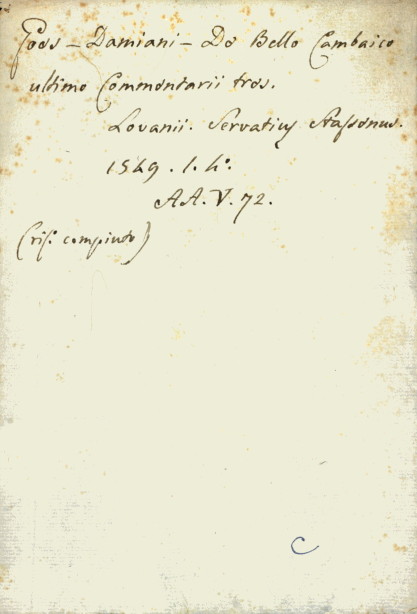 Goes – Damiani – De Bello Cambaico
ultimo Commentarii tres.
Lovanii. Servatius Stassenus.
1549. 1. 4º.
AA. V. 72.
(ris. compiuto)
C